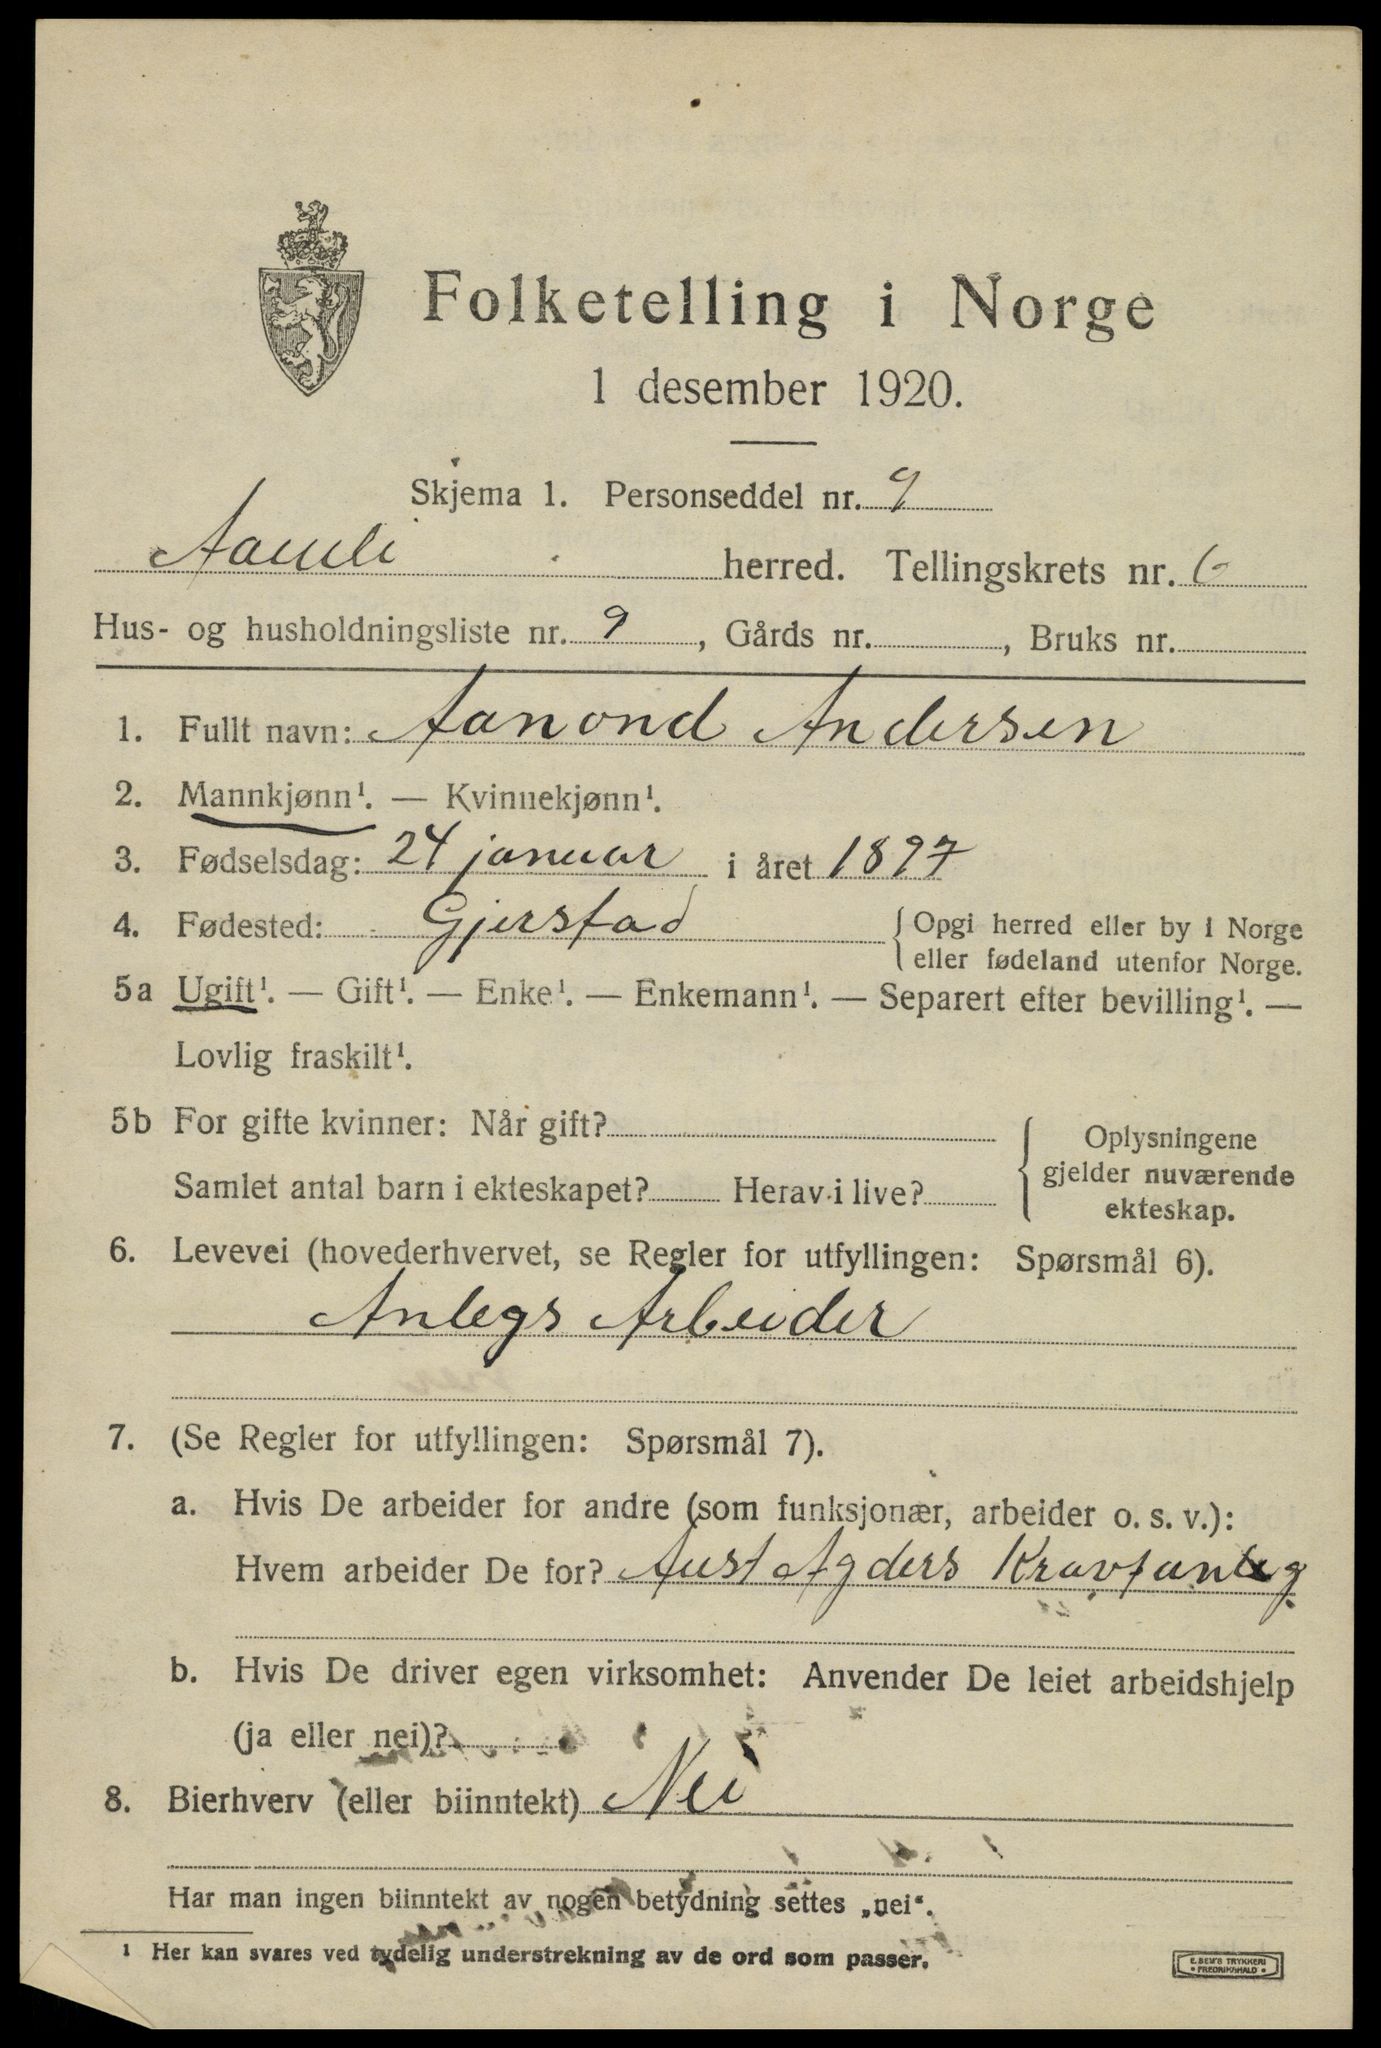 Folketelling i Norge
1 desember 1920.
Skjema 1. Personseddel nr. 9
Aamli herred. Tellingskrets nr. 6
Hus- og husholdningsliste nr. 9, Gårds nr. , Bruks nr.
1. Fullt navn: Aanond Andersen
2. Mannkjønn¹. — Kvinnekjønn¹.
3. Fødselsdag: 24 januar i året 1897
4. Fødested: Gjerstad { Opgi herred eller by i Norge
eller fødeland utenfor Norge.
5a Ugift¹. — Gift¹. — Enke¹. — Enkemann¹. — Separert efter bevilling¹. —
Lovlig fraskilt¹.
5b For gifte kvinner: Når gift? { Oplysningene
gjelder nuværende
Samlet antal barn i ekteskapet? Herav i live?
ekteskap.
6. Levevei (hovederhvervet, se Regler for utfyllingen: Spørsmål 6).
Anlegs Arbeider
7. (Se Regler for utfyllingen: Spørsmål 7).
a. Hvis De arbeider for andre (som funksjonær, arbeider o. s. v.):
Hvem arbeider De for? Aust Agders Kravfanleg
b. Hvis De driver egen virksomhet: Anvender De leiet arbeidshjelp
(ja eller nei)?
8. Bierhverv (eller biinntekt) Nei
Har man ingen biinntekt av nogen betydning settes „nei“.
¹ Her kan svares ved tydelig understrekning av de ord som passer.
E. SEM'S TRYKKERI
• FREDRIKSHALD •